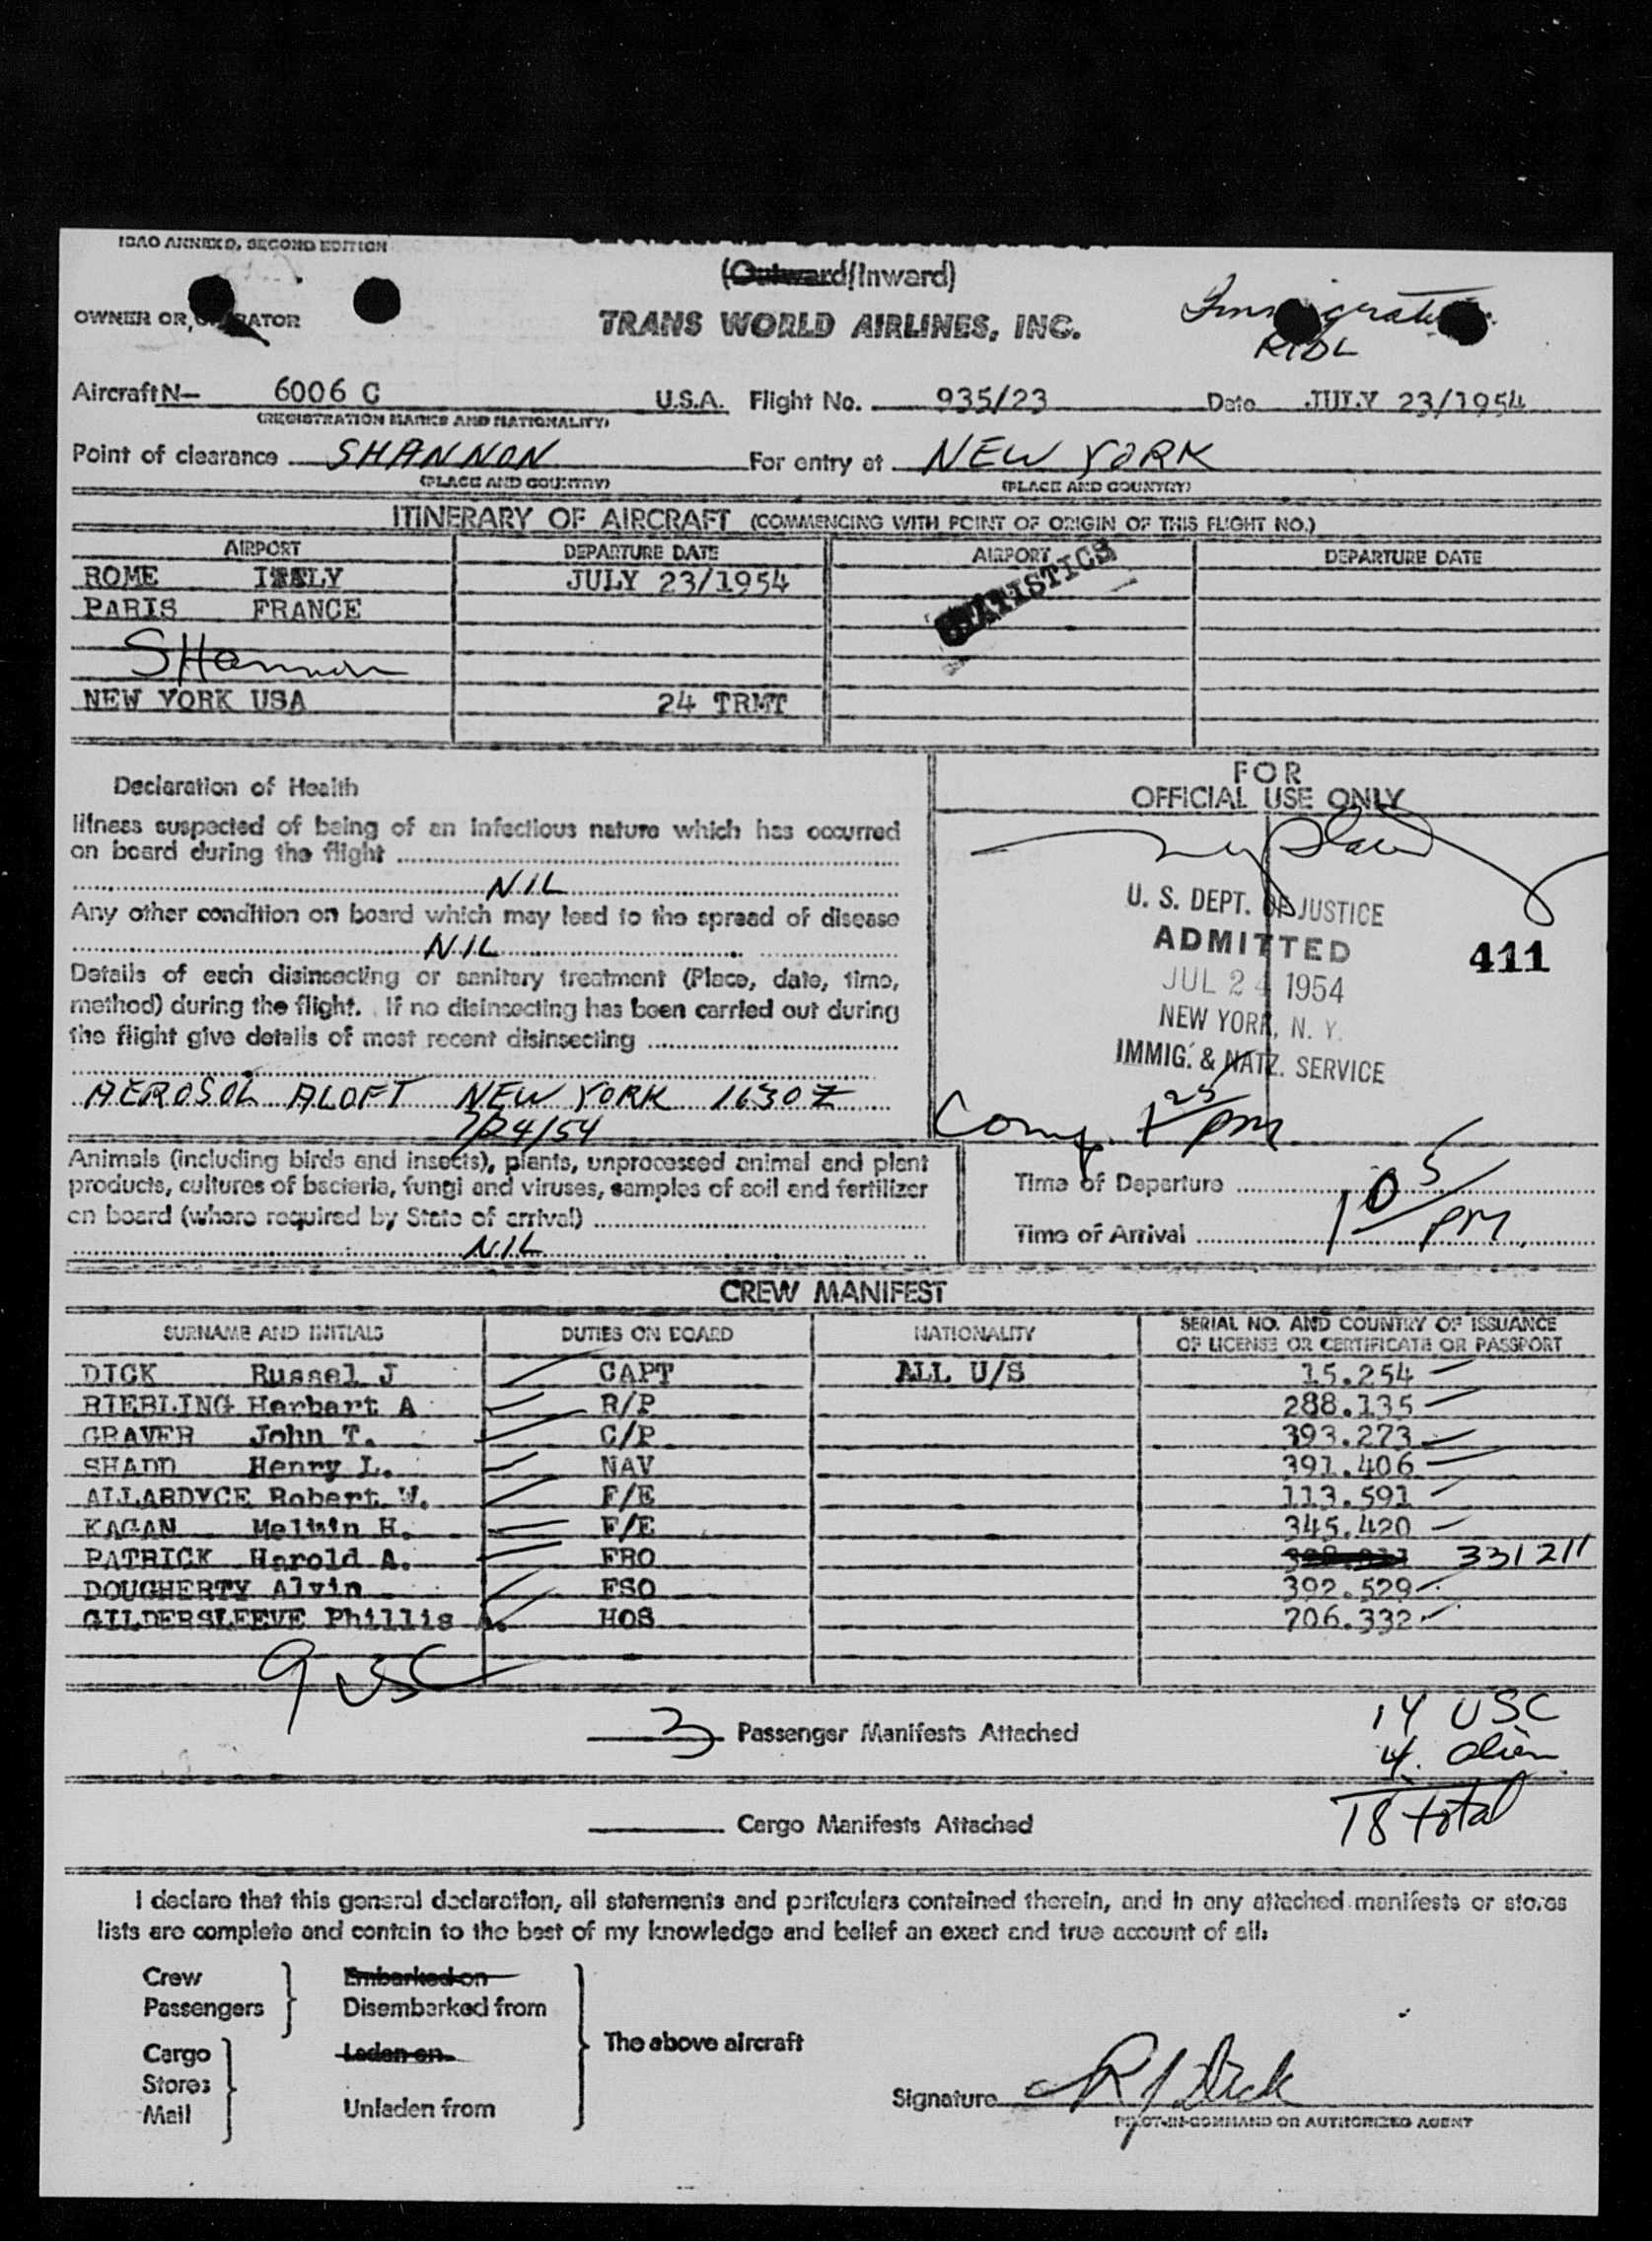 ICAO ANNEX 9, SECOND EDITION
(Outward/Inward)
OWNER OR OPERATOR
TRANS WORLD AIRLINES, INC.
Immigration
Aircraft N- 6006 C U.S.A. Flight No. 935/23 Date JULY 23/1954
(REGISTRATION MARKS AND NATIONALITY)
Point of clearance SHANNON For entry at NEW YORK
(PLACE AND COUNTRY) (PLACE AND COUNTRY)
ITINERARY OF AIRCRAFT (COMMENCING WITH POINT OF ORIGIN OF THIS FLIGHT NO.)
AIRPORT DEPARTURE DATE AIRPORT DEPARTURE DATE
ROME ITALY JULY 23/1954
STATISTICS
PARIS FRANCE
SHannon
NEW YORK USA 24 TRMT
Declaration of Health
Illness suspected of being of an infectious nature which has occurred
on board during the flight
NIL
Any other condition on board which may lead to the spread of disease
NIL
Details of each disinsecting or sanitary treatment (Place, date, time,
method) during the flight. If no disinsecting has been carried out during
the flight give details of most recent disinsecting
AEROSOL ALOFT NEW YORK 1630Z
7/24/54
FOR
OFFICIAL USE ONLY
U. S. DEPT. OF JUSTICE
ADMITTED
411
JUL 24 1954
NEW YORK, N. Y.
IMMIG. & NATZ. SERVICE
Comp. 1 25/PM
Animals (including birds and insects), plants, unprocessed animal and plant
products, cultures of bacteria, fungi and viruses, samples of soil and fertilizer
on board (where required by State of arrival)
NIL
Time of Departure
Time of Arrival 1 05/PM
CREW MANIFEST
SURNAME AND INITIALS DUTIES ON BOARD NATIONALITY SERIAL NO. AND COUNTRY OF ISSUANCE
OF LICENSE OR CERTIFICATE OR PASSPORT
DICK Russel J CAPT ALL U/S 15.254
RIEBLING Herbert A R/P 288.135
GRAVER John T. C/P 393.273
SHADD Henry L. NAV 391.406
ALLARDYCE Robert W. F/E 113.591
KAGAN Melvin H. F/E 345.420
PATRICK Harold A. FRO 331211
DOUGHERTY Alvin FSO 392.529
GILDERSLEEVE Phillis A. HOS 706.332
9 USC
3 Passenger Manifests Attached
14 USC
4 alien
18 total
Cargo Manifests Attached
I declare that this general declaration, all statements and particulars contained therein, and in any attached manifests or stores
lists are complete and contain to the best of my knowledge and belief an exact and true account of all:
Crew Embarked on
Passengers Disembarked from
The above aircraft
Cargo Laden on
Stores
Mail Unladen from
Signature R J Dick
PILOT-IN-COMMAND OR AUTHORIZED AGENT